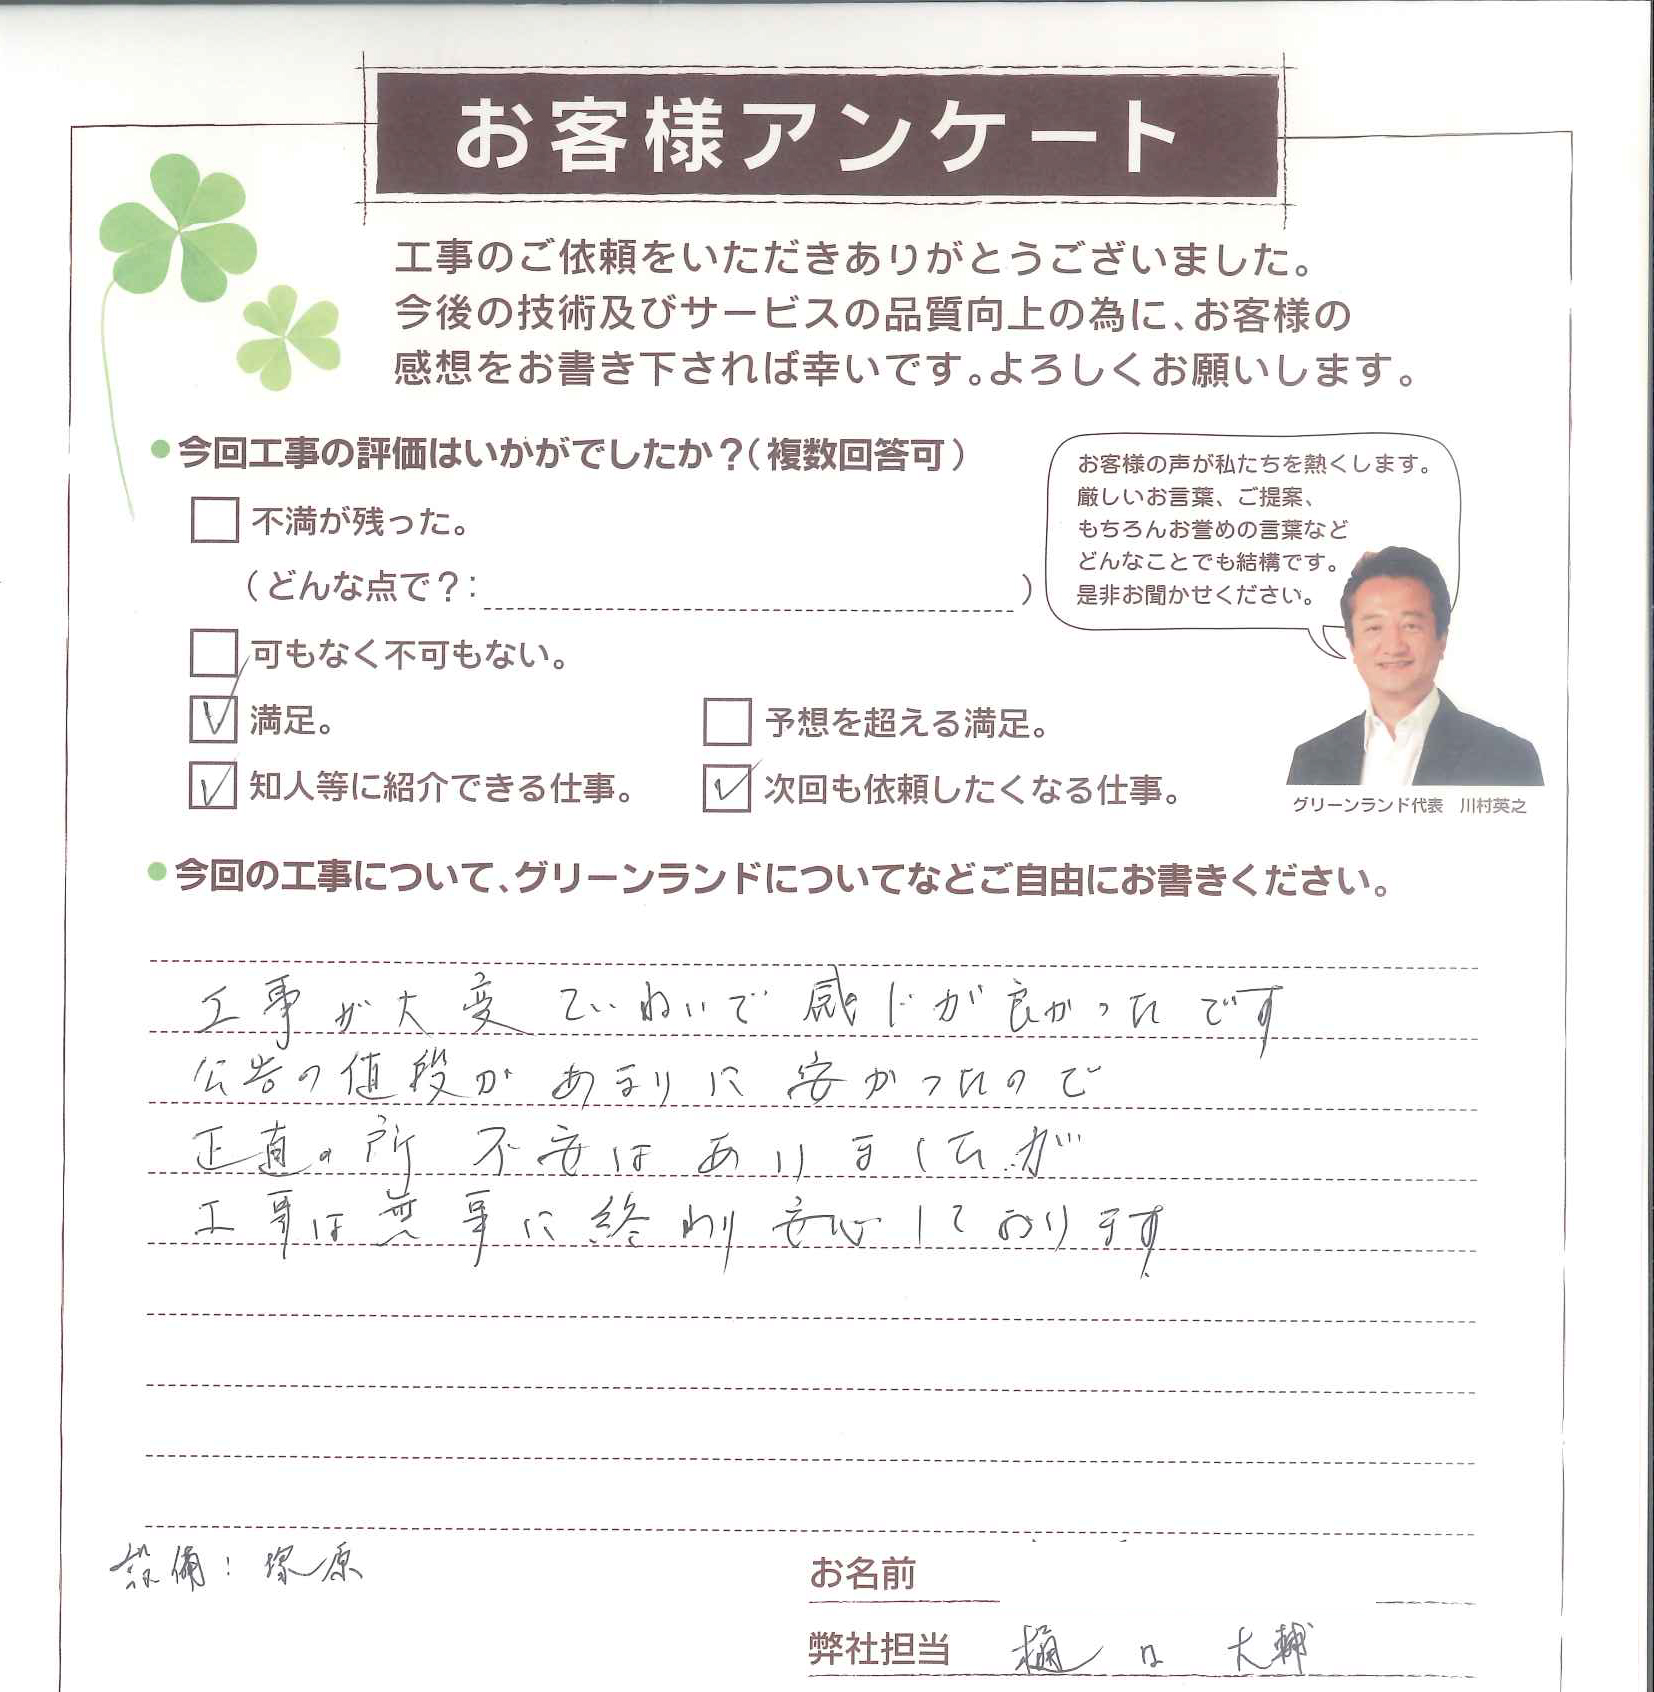 お客様アンケート
工事のご依頼をいただきありがとうございました。
今後の技術及びサービスの品質向上の為に、お客様の
感想をお書き下されば幸いです。よろしくお願いします。
今回工事の評価はいかがでしたか?(複数回答可)
不満が残った。
(どんな点で?: )
可もなく不可もない。
満足。
予想を超える満足。
知人等に紹介できる仕事。
次回も依頼したくなる仕事。
お客様の声が私たちを熱くします。
厳しいお言葉、ご提案、
もちろんお誉めの言葉など
どんなことでも結構です。
是非お聞かせください。
グリーンランド代表 川村英之
今回の工事について、グリーンランドについてなどご自由にお書きください。
工事が大変ていねいで感じが良かったです
公告の値段があまりに安かったので
正直の所 不安はありましたが
工事は無事に終わり安心しております
設備:塚原
お名前
弊社担当 樋口 大輔